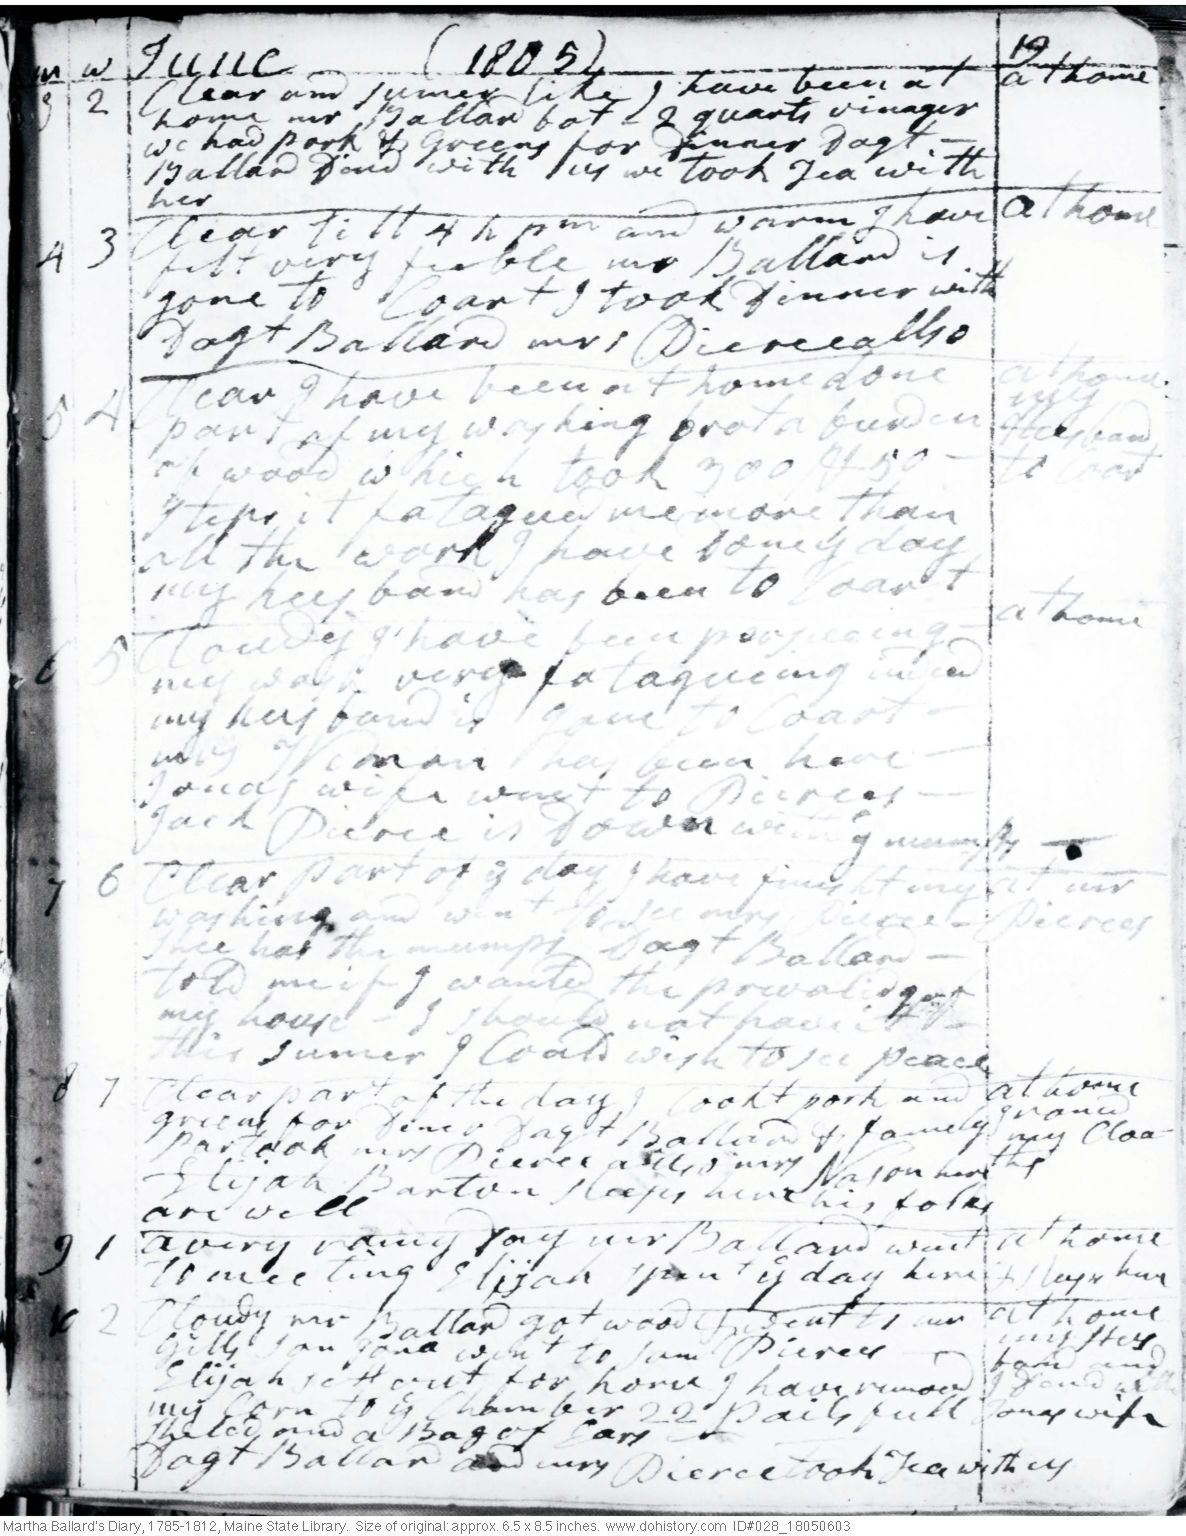 m w June (1805) 19
3 2 Clear and sumer like I have been at at home
home mr Ballard bot 2 quarts vinager
we had pork & Greens for Dinner Dagt -
Ballard Dind with us we took Tea with
her
4 3 Clear till 4 h pm and warm I have at home
felt very feeble mr Ballard is
gone to Coart I took Dinner with
Dagt Ballard mrs Pierce allso
5 4 Clear I have been at home done at home
part of my washing brot a burden my Husband
of wood which took 300 & 50 - to Coart
steps it fatagued me more than
all the work I have done ys day
my husband has been to Coart
6 5 Cloudy I have been persueing - at home
my work very fatagueing indeed
my husband is gone to Coart -
mrs has been here -
Jonas wife went to Pierces -
Jack Pierce is Down with ye mumps -
7 6 Clear part of ye day I have finisht my at mr
washing and went to see mrs Pierce - Pierces
shee has the mumps Dagt Ballard -
told me if I wanted the prevalige of
my house - I should not have it -
this sumer I Coald wish to see peace
8 7 Clear part of the day I Cookt pork and at home
greens for Diner Dagt Ballard & famely ironed
partook mrs Pierce allso mrs Nason here my Cloa-
Elijah Barton sleeps here his folks ths
are well
9 1 a very rainy day mr Ballard went at home
to meeting Elijah spent ye day here & sleeps here
10 2 Cloudy mr Ballard got wood I went to mr at home
Gills Jona went to sum Pierces my Hus
Elijah sett out for home I have removd band and
my Corn to ye Chamber 22 Pails full I Dind with
and a Bag of Ears Jonas wife
Dagt Ballard and mrs Pierce took Tea with us
Martha Ballard's Diary, 1785-1812, Maine State Library. Size of original: approx. 6.5 x 8.5 inches. www.dohistory.com ID#028_18050603